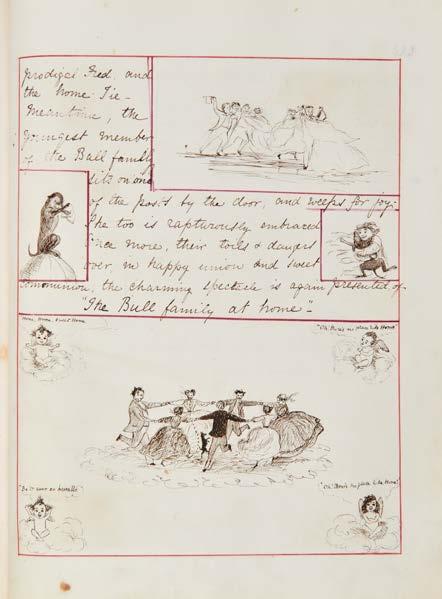 prodigal Fred, and
the home-Tie.
Meantime, the
youngest member
of the Bull family
sits on one
of the posts by the door, and weeps for joy.
She too is rapturously embraced
Once more, their toils & dangers
over, in happy union and sweet
communion, the charming spectacle is again presented of
"The Bull family at home".
Home, Home, Sweet Home
"Oh! there's no place like Home"
"Be it ever so humble"
"Oh! There's no place like Home"